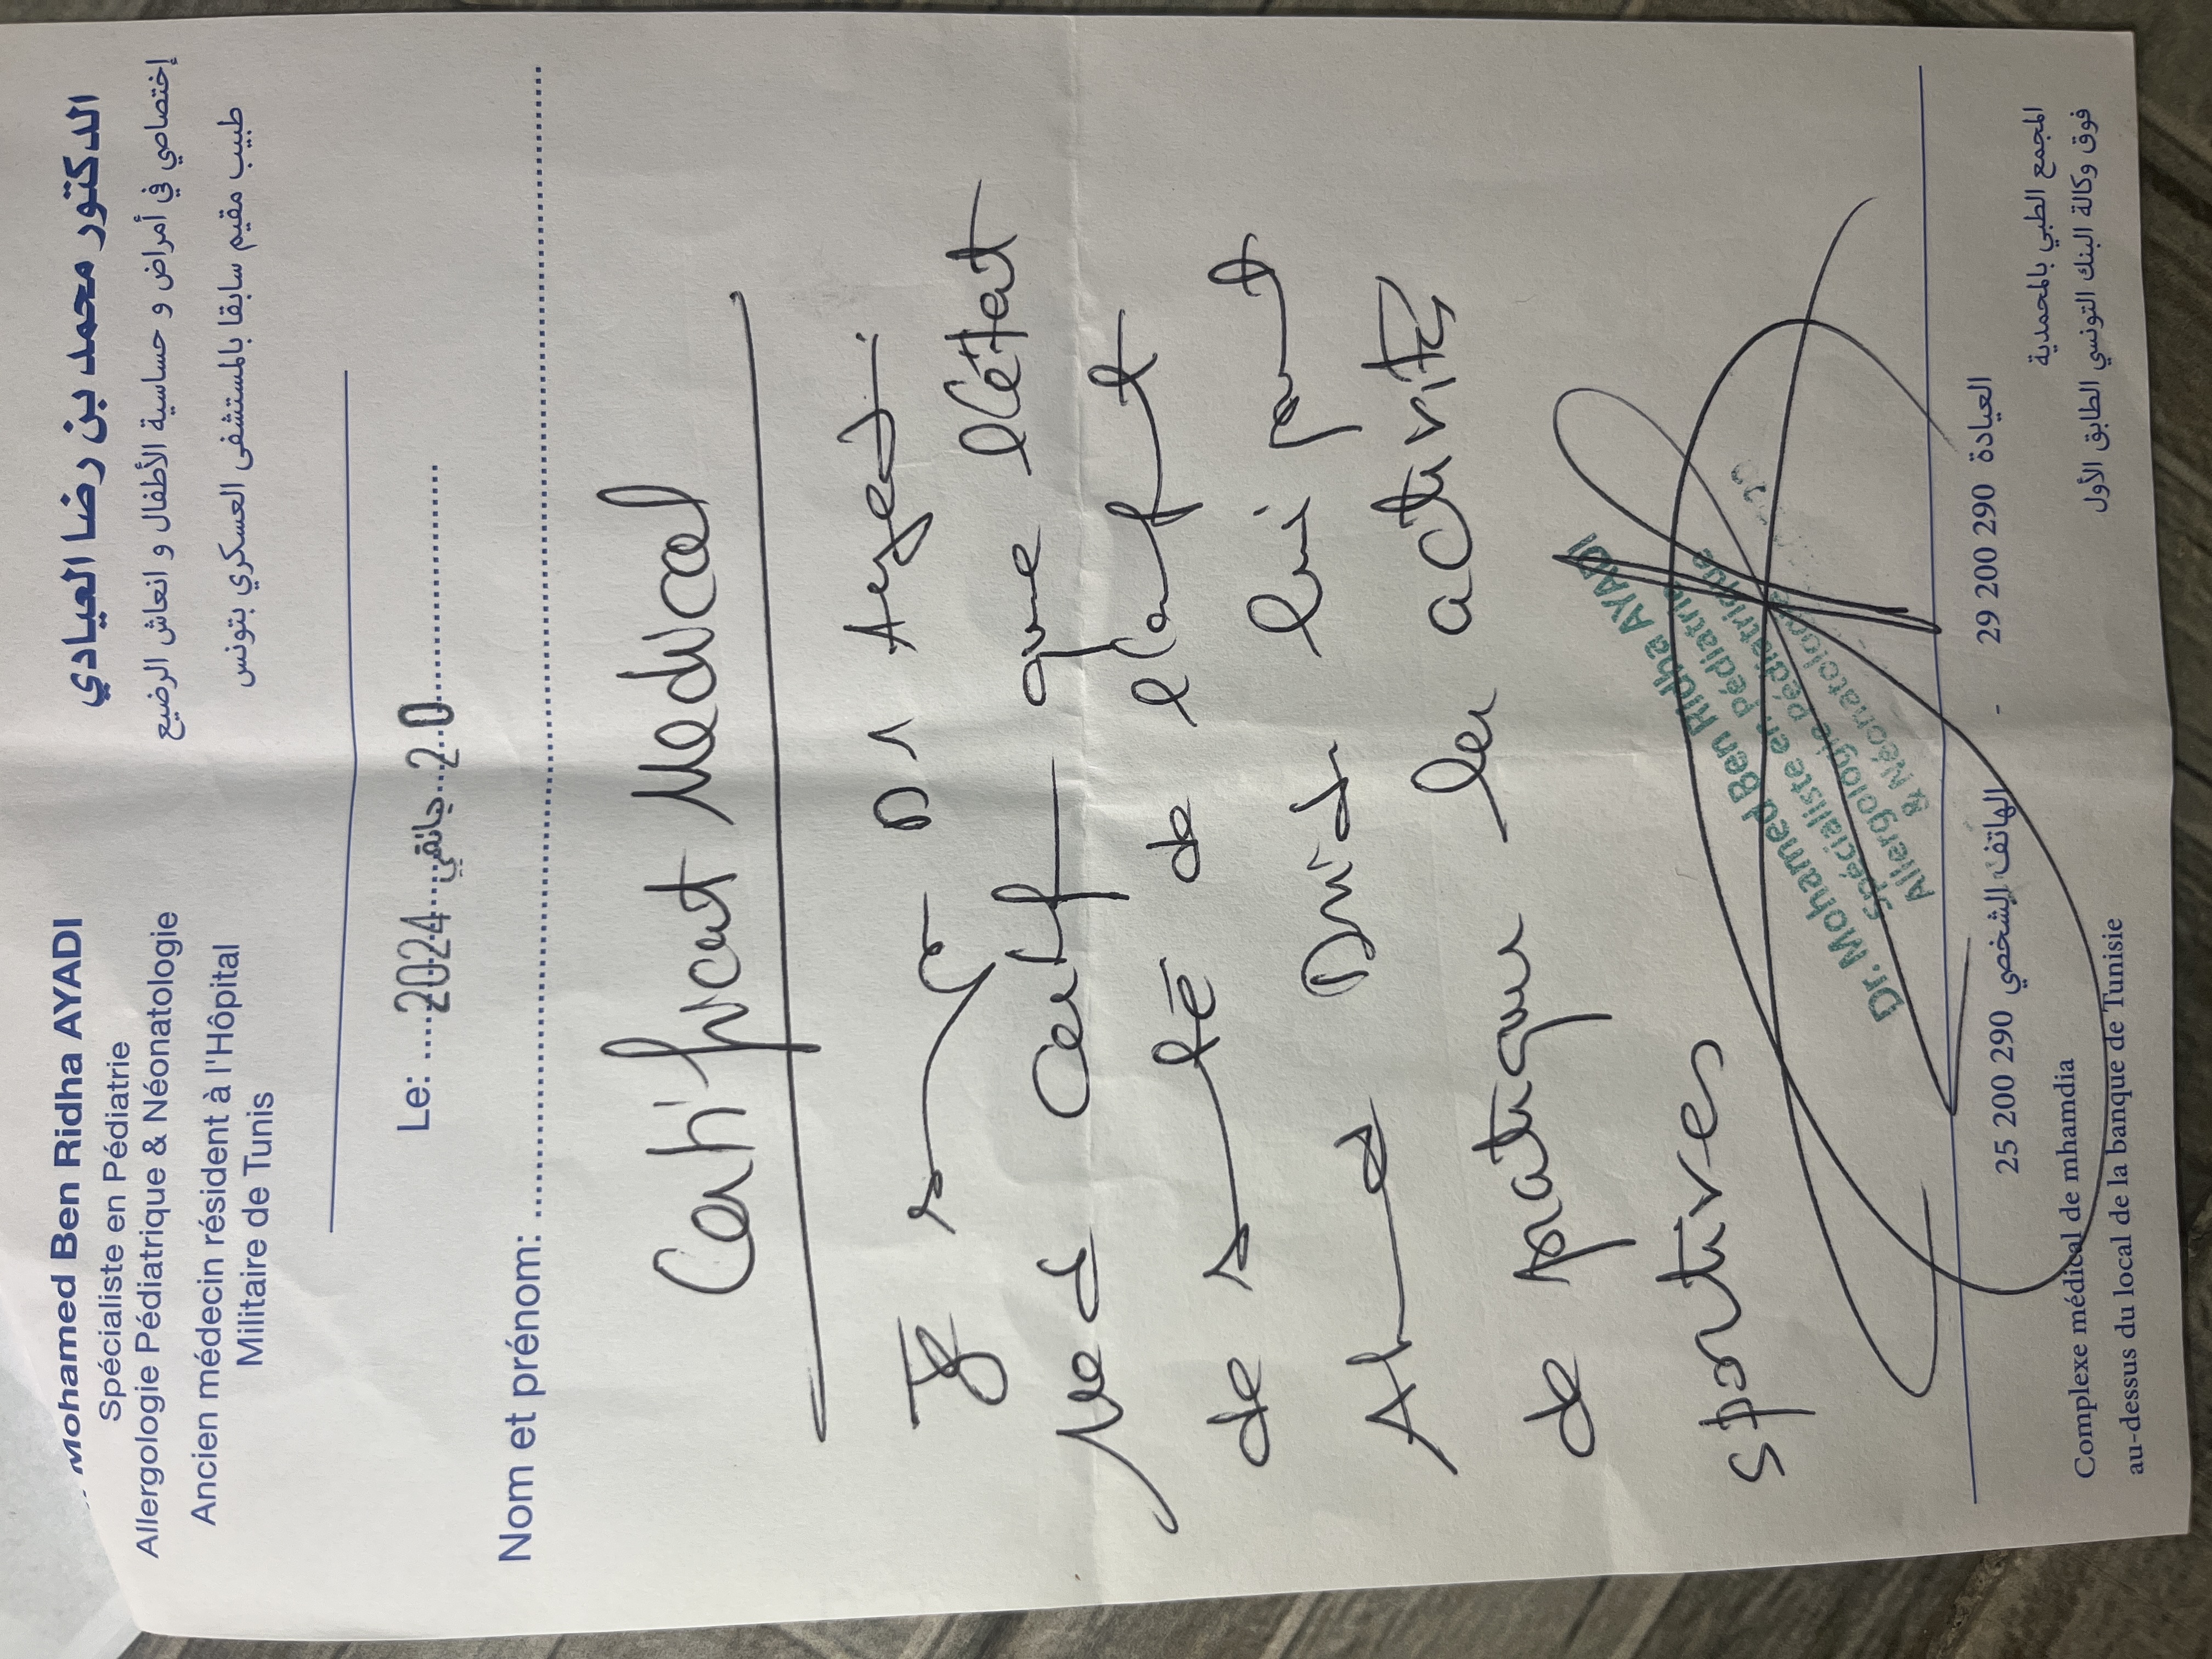 Mohamed Ben Ridha AYADI
Spécialiste en Pédiatrie
Allergologie Pédiatrique & Néonatologie
Ancien médecin résident à l'Hôpital
Militaire de Tunis
الدكتور محمد بن رضا العيادي
إختصاصي في أمراض و حساسية الأطفال و انعاش الرضيع
طبيب مقيم سابقا بالمستشفى العسكري بتونس
Le: 2024 جانفي 20
Nom et prénom:
Certificat Medical
Je Dr Ayedi
Med Certif que l'état
de de l'enfant
Ahmed Dridi lui permet
de pratiquer les activités
sportives
Dr. Mohamed Ben Ridha AYADI
Spécialiste en Pédiatrie
Allergologie Pédiatrique
& Néonatologie
25 200 290 الهاتف الشخصي - 29 200 290 العيادة
Complexe médical de mhamdia
au-dessus du local de la banque de Tunisie
المجمع الطبي بالمحمدية
فوق وكالة البنك التونسي الطابق الأول